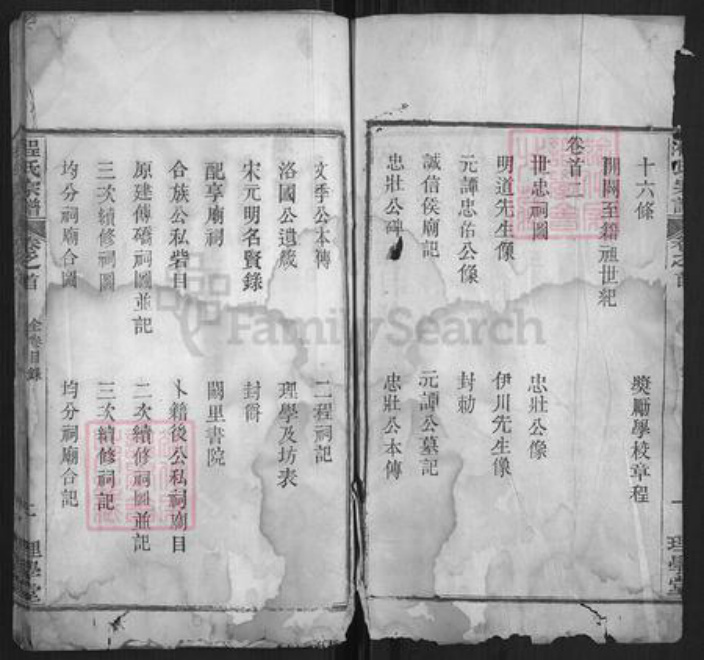 十六條
獎勵學校章程
開闢至籍祖世紀
卷首二
世忠祠圖
忠壯公像
明道先生像
伊川先生像
元譚忠佑公像
封勅
誠信侯廟記
元譚公墓記
忠壯公碑
忠壯公本傳
文季公本傳
二程祠記
洛國公遺箴
理學及坊表
宋元明名賢錄
封爵
配享廟祠
闕里書院
合族公私砦目
卜籍後公私祠廟目
原建傳橋祠圖並記
二次續修祠圖並記
三次續修祠圖
三次續修祠記
均分祠廟合圖
均分祠廟合記
程氏宗譜
卷之首
全卷目錄
理學堂
理學堂
FamilySearch